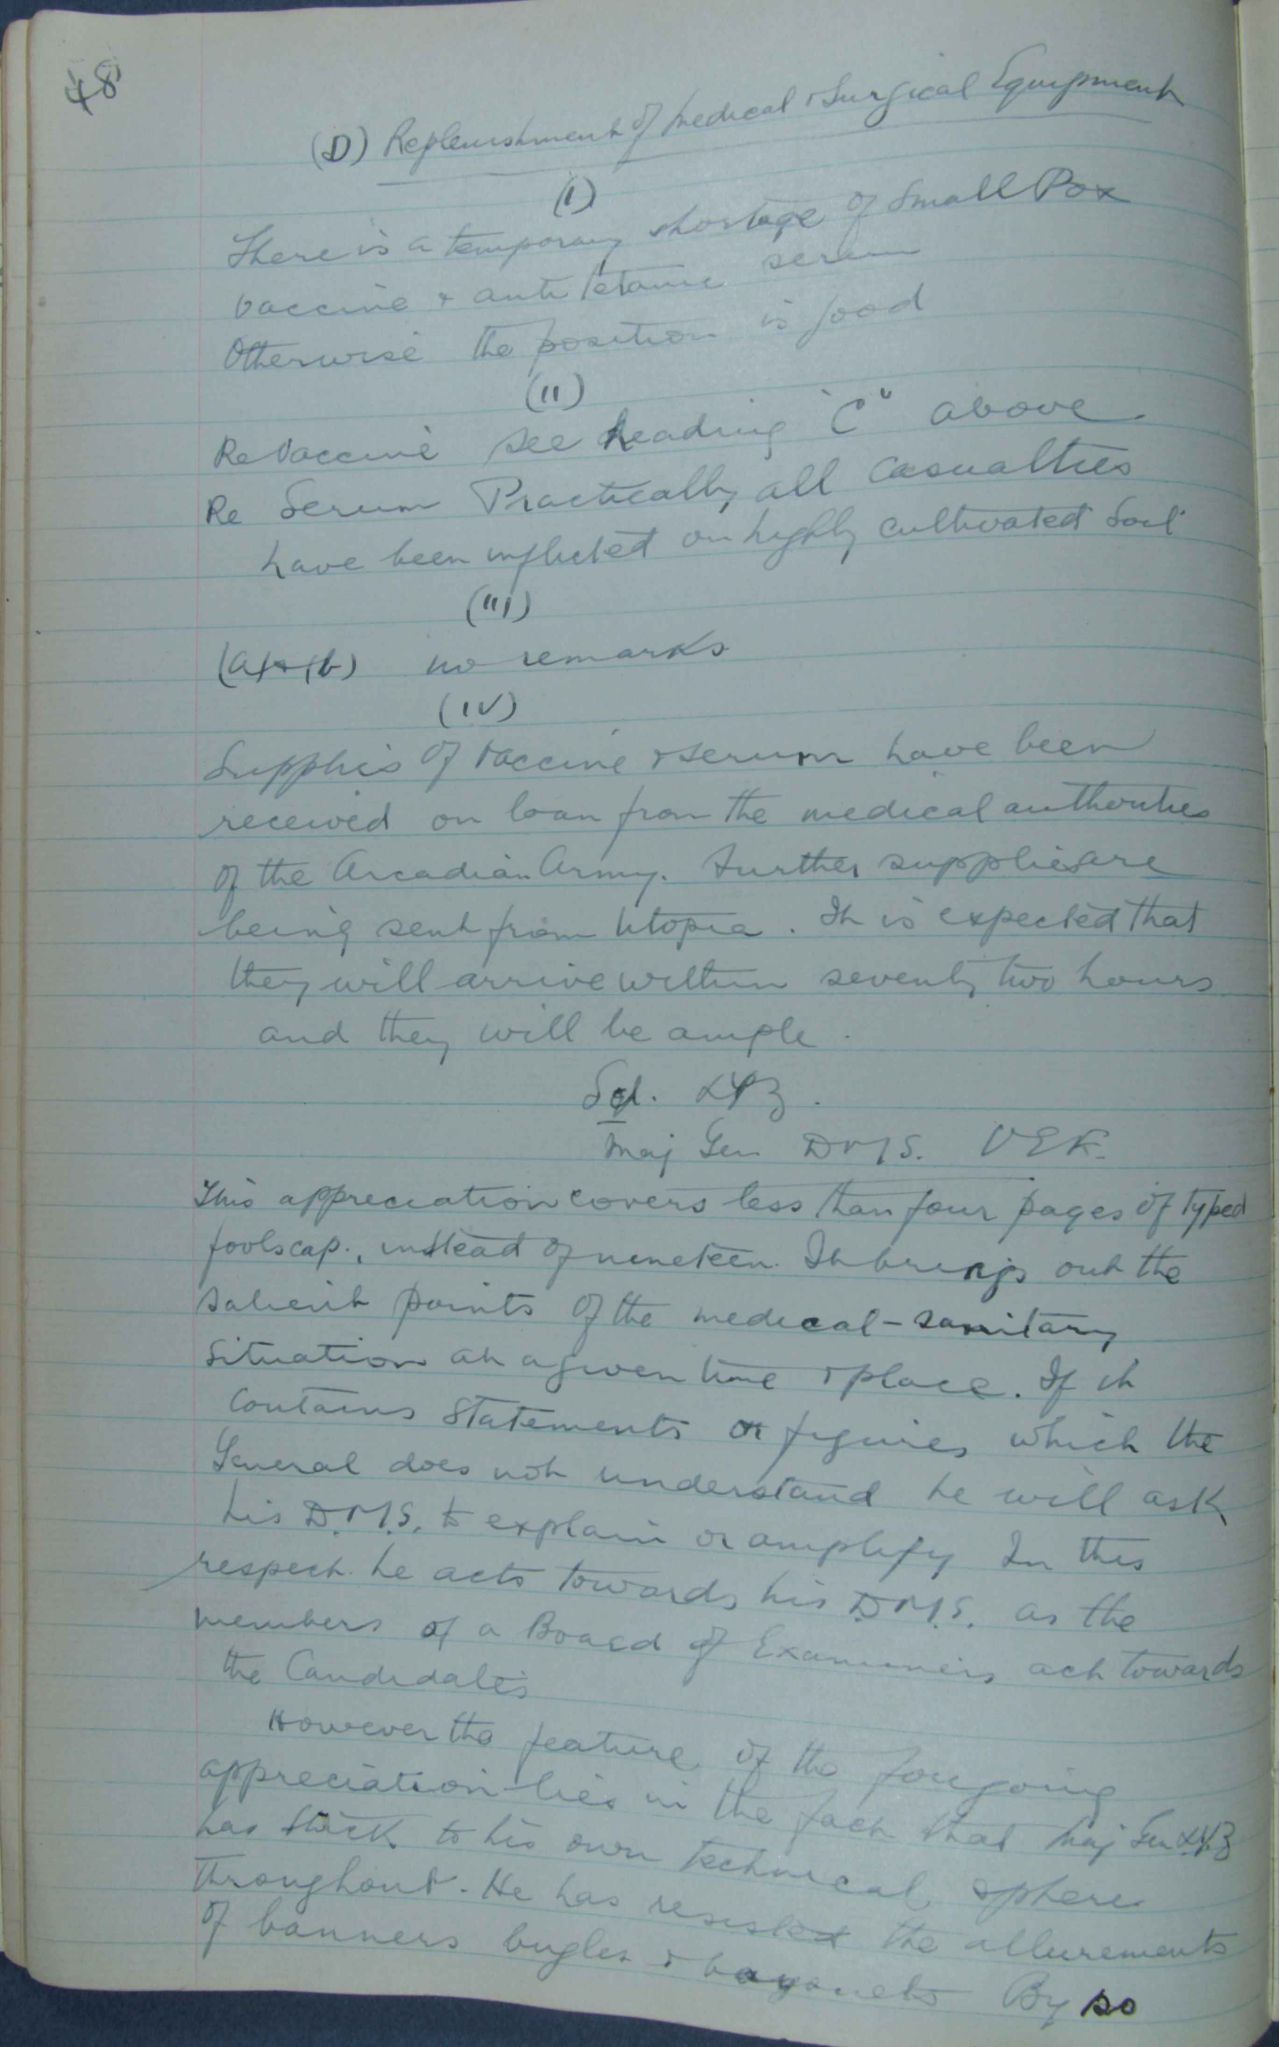 48
(D) Replenishment of Medical & Surgical Equipment
(I)
There is a temporary shortage of Small Pox
vaccine & anti tetanic serum
Otherwise the position is good
(II)
Re Vaccine see heading "C" above.
Re Serum Practically all casualties
have been inflicted on highly cultivated soil
(III)
(a) & (b) no remarks
(IV)
Supplies of vaccine & serum have been
received on loan from the medical authorities
of the Arcadian Army. Further supplies are
being sent from Utopia. It is expected that
they will arrive within seventy two hours
and they will be ample.
Sgd. XYZ.
Maj Gen DMS. VEF.
This appreciation covers less than four pages of typed
foolscap, instead of nineteen. It brings out the
salient points of the medical-sanitary
situation at a given time & place. If it
contains statements or figures which the
General does not understand he will ask
his D.M.S. to explain or amplify In this
respect he acts towards his D.M.S. as the
members of a Board of Examiners act towards
the Candidates
However the feature of the foregoing
appreciation lies in the fact that Maj Gen XYZ
has stuck to his own technical sphere
throughout. He has resisted the allurements
of banners bugles & bayonets By so